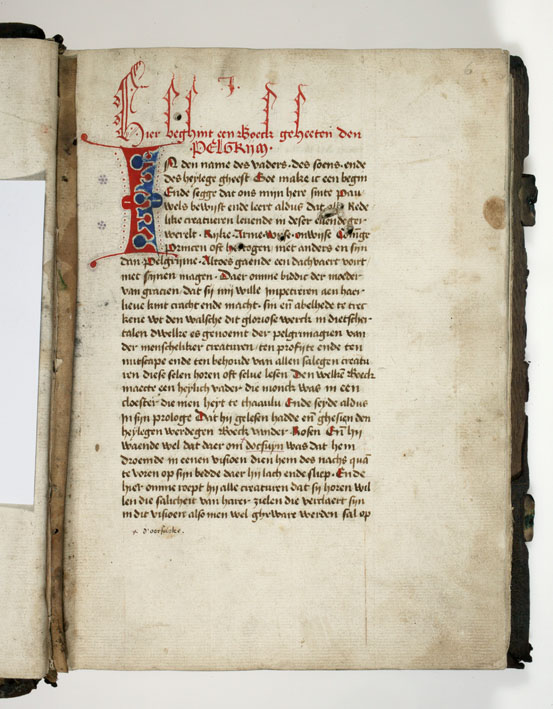 Hier beghint een Boeck geheeten den
PELGRYM.
IN den name des vaders. des soens. ende
des heylege gheest Soe make ic een begin
Ende segge dat ons mijn here sinte Pau
wels bewijst ende leert aldus dat alle Rede
like creatueren leuende in deser
werelt. Rijke. Arme. wyse. onwyse Coninge
Princen oft hertogen niet anders en sijn
dan Pelgrijme. Altoes gaende een dachvaert voirt
met sijnen magen. Daer omme biddic der moeder
van gracien. dat sij mij wille impeteren aen haer
lieue kint cracht ende macht. sin en̄ abelhede te trec
kene wt den walsche dit gloriose werck in dietscher
talen dwelke es genoemt der pelgrimagien van
der menscheliker creaturen. ten profijte ende ten
nutscape ende ten behoude van allen salegen creatu
ren diese selen horen oft selue lesen. Den welkē Boeck
maecte een heylich vader die monck was in een
cloester die men heyt te chaaulu. Ende seyde aldus
in sijn prologe Dat hij gelesen hadde en̄ ghesien den
heylegen werdegen Boeck vander Rosen. En̄ hij
waende wel dat daer om̄ doersuyn was dat hem
droemde in eenen visioen dien hem des nachs quā
te voren op sijn bedde daer hij lach ende sliep. Ende
hier omme roept hij alle creaturen dat sij horen wil
len die salicheit van harer zielen die verclaert sijn
in dit visioen also men wel gheware werden sal op
x d'oorsaecke.